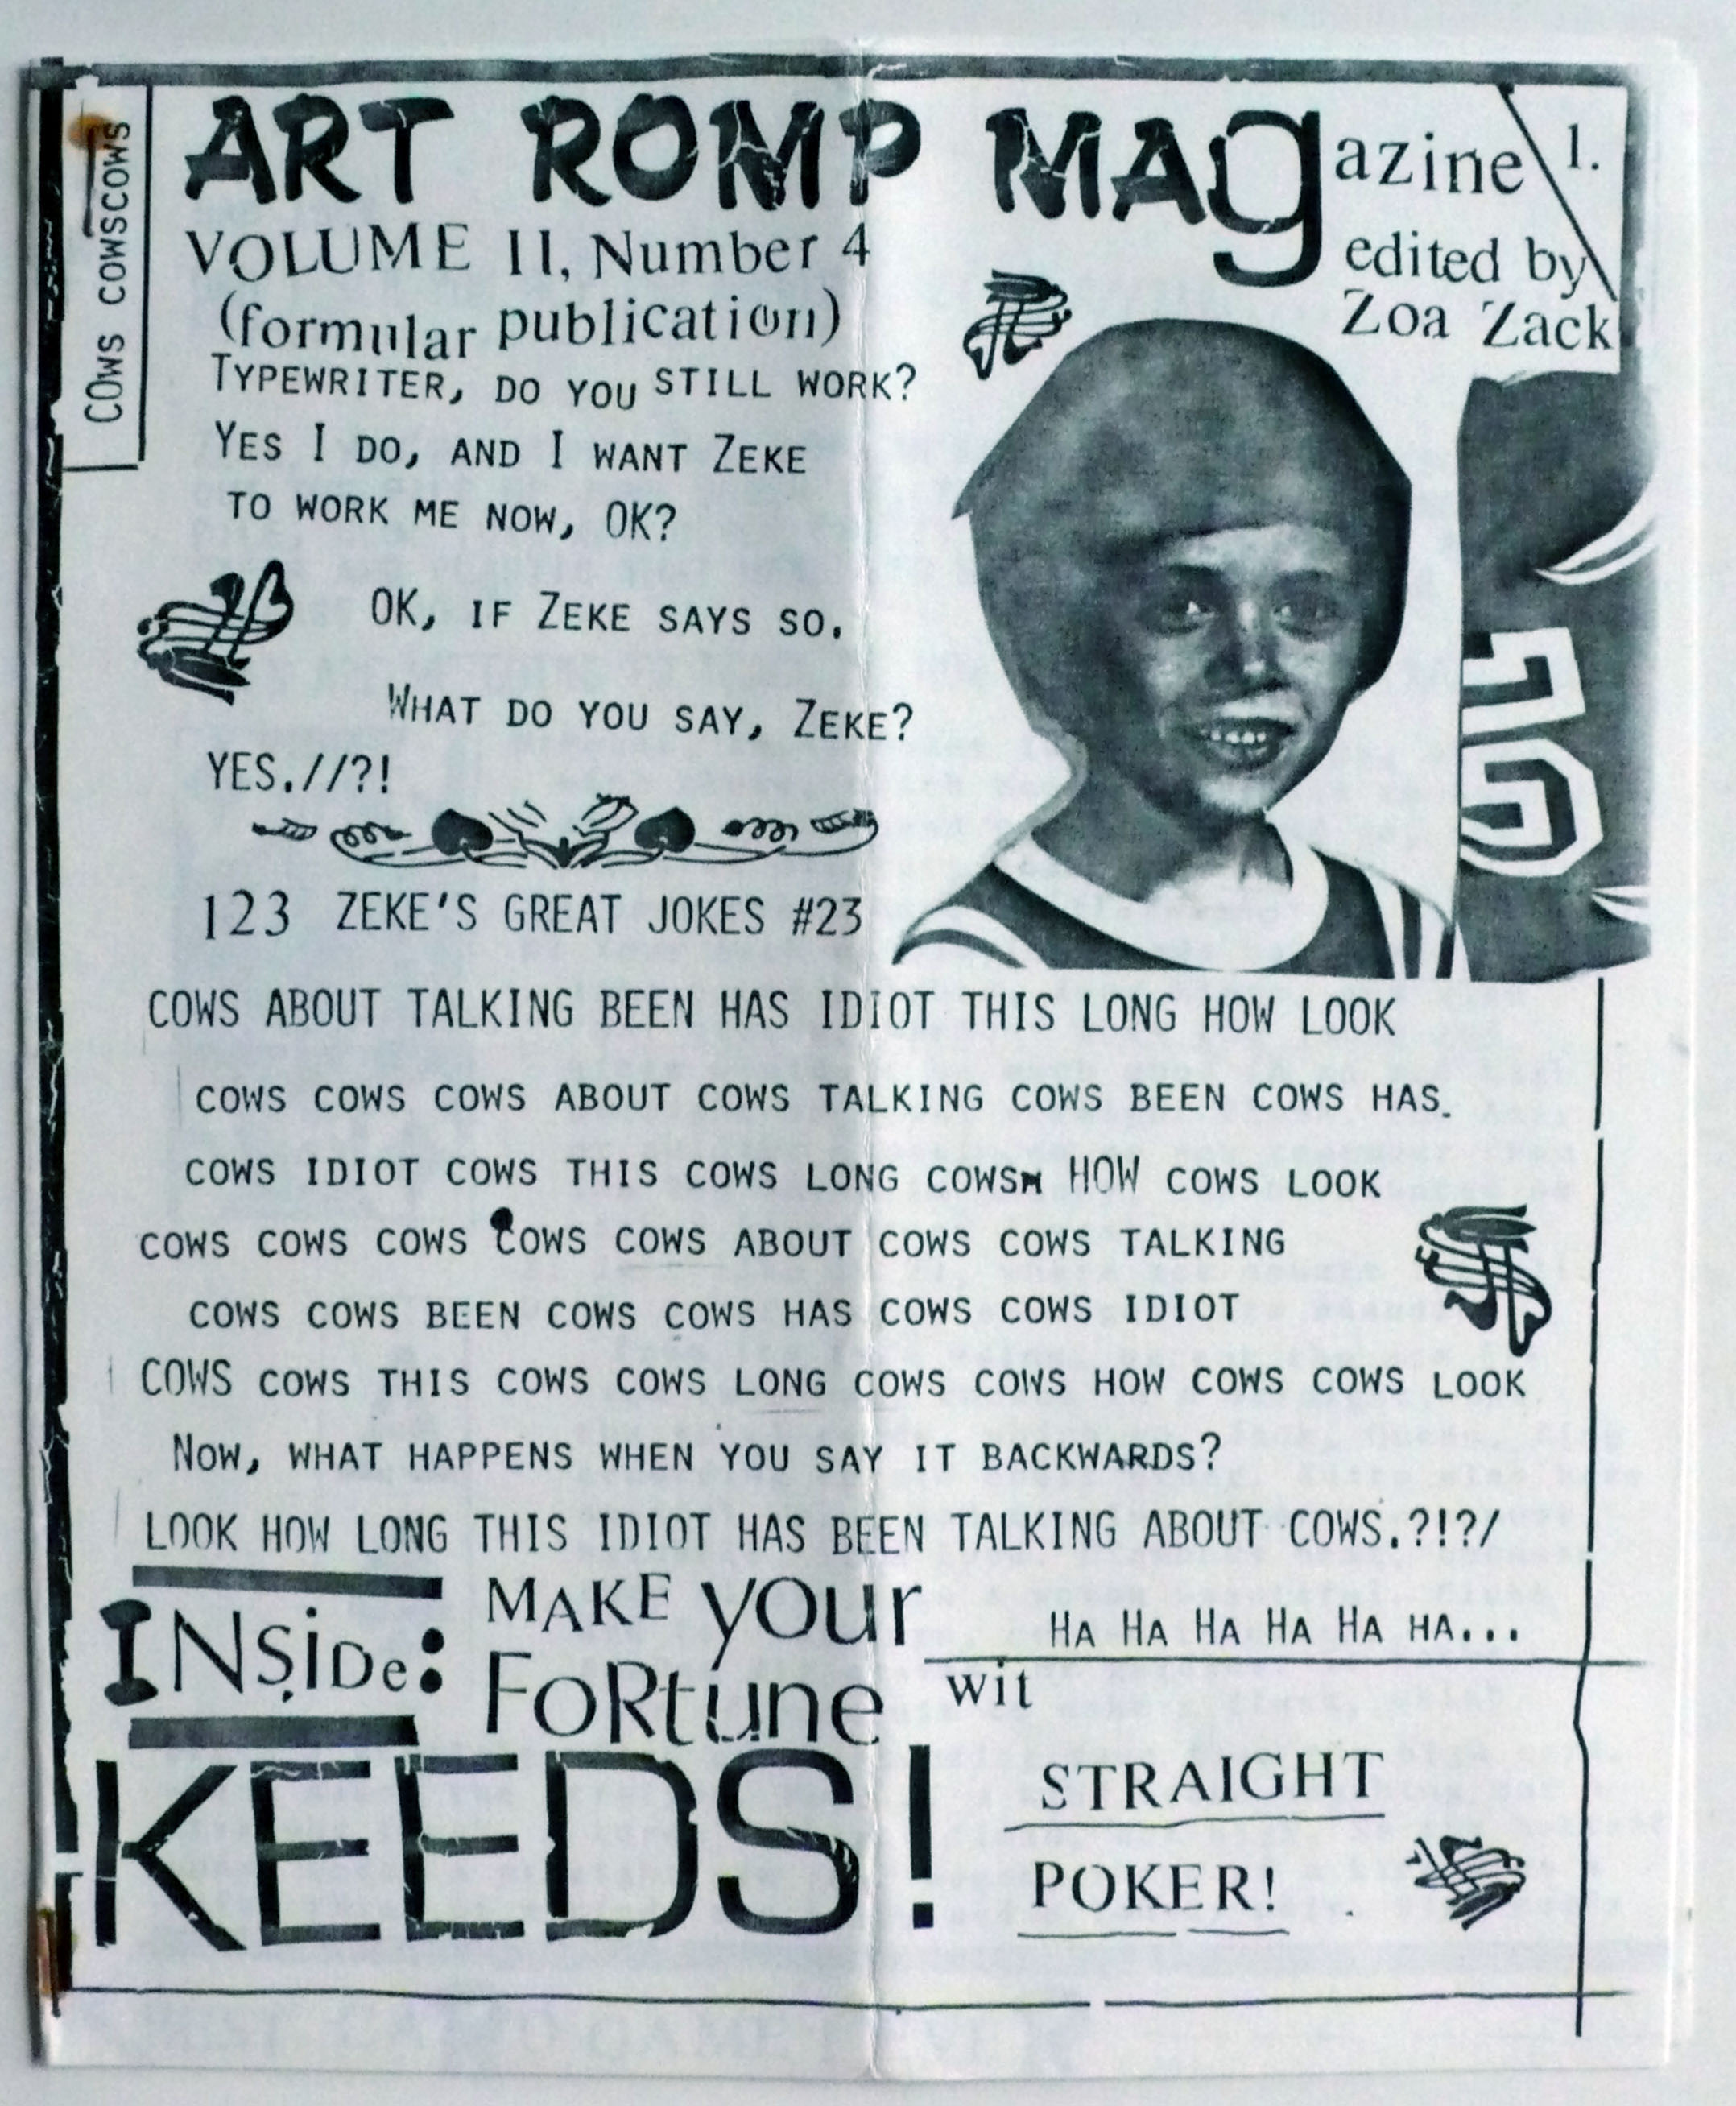 COWS COWSCOWS
ART ROMP MAgazine 1.
VOLUME II, Number 4
edited by
(formular publication)
Zoa Zack
TYPEWRITER, DO YOU STILL WORK?
YES I DO, AND I WANT ZEKE
TO WORK ME NOW, OK?
OK, IF ZEKE SAYS SO.
WHAT DO YOU SAY, ZEKE?
YES.//?!
123 ZEKE'S GREAT JOKES #23
COWS ABOUT TALKING BEEN HAS IDIOT THIS LONG HOW LOOK
COWS COWS COWS ABOUT COWS TALKING COWS BEEN COWS HAS.
COWS IDIOT COWS THIS COWS LONG COWSM HOW COWS LOOK
COWS COWS COWS COWS COWS ABOUT COWS COWS TALKING
COWS COWS BEEN COWS COWS HAS COWS COWS IDIOT
COWS COWS THIS COWS COWS LONG COWS COWS HOW COWS COWS LOOK
NOW, WHAT HAPPENS WHEN YOU SAY IT BACKWARDS?
LOOK HOW LONG THIS IDIOT HAS BEEN TALKING ABOUT COWS.?!?/
HA HA HA HA HA HA...
INSiDe: MAKE your
FoRtune wit
KEEDS!
STRAIGHT
POKER!